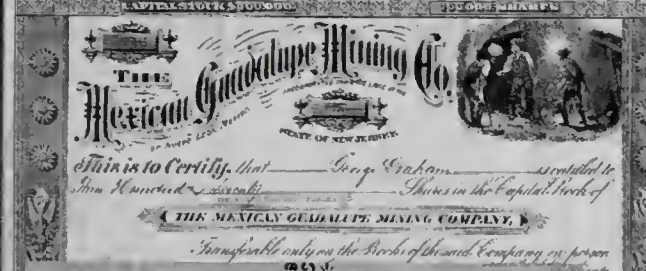 CAPITAL STOCK $
SHARES
THE
Mexican Guadalupe Mining Co.
STATE OF NEW JERSEY.
This is to Certify, that George Graham is entitled to
Hundred Shares in the Capital Stock of
THE MEXICAN GUADALUPE MINING COMPANY,
Transferable only on the Books of the said Company in person